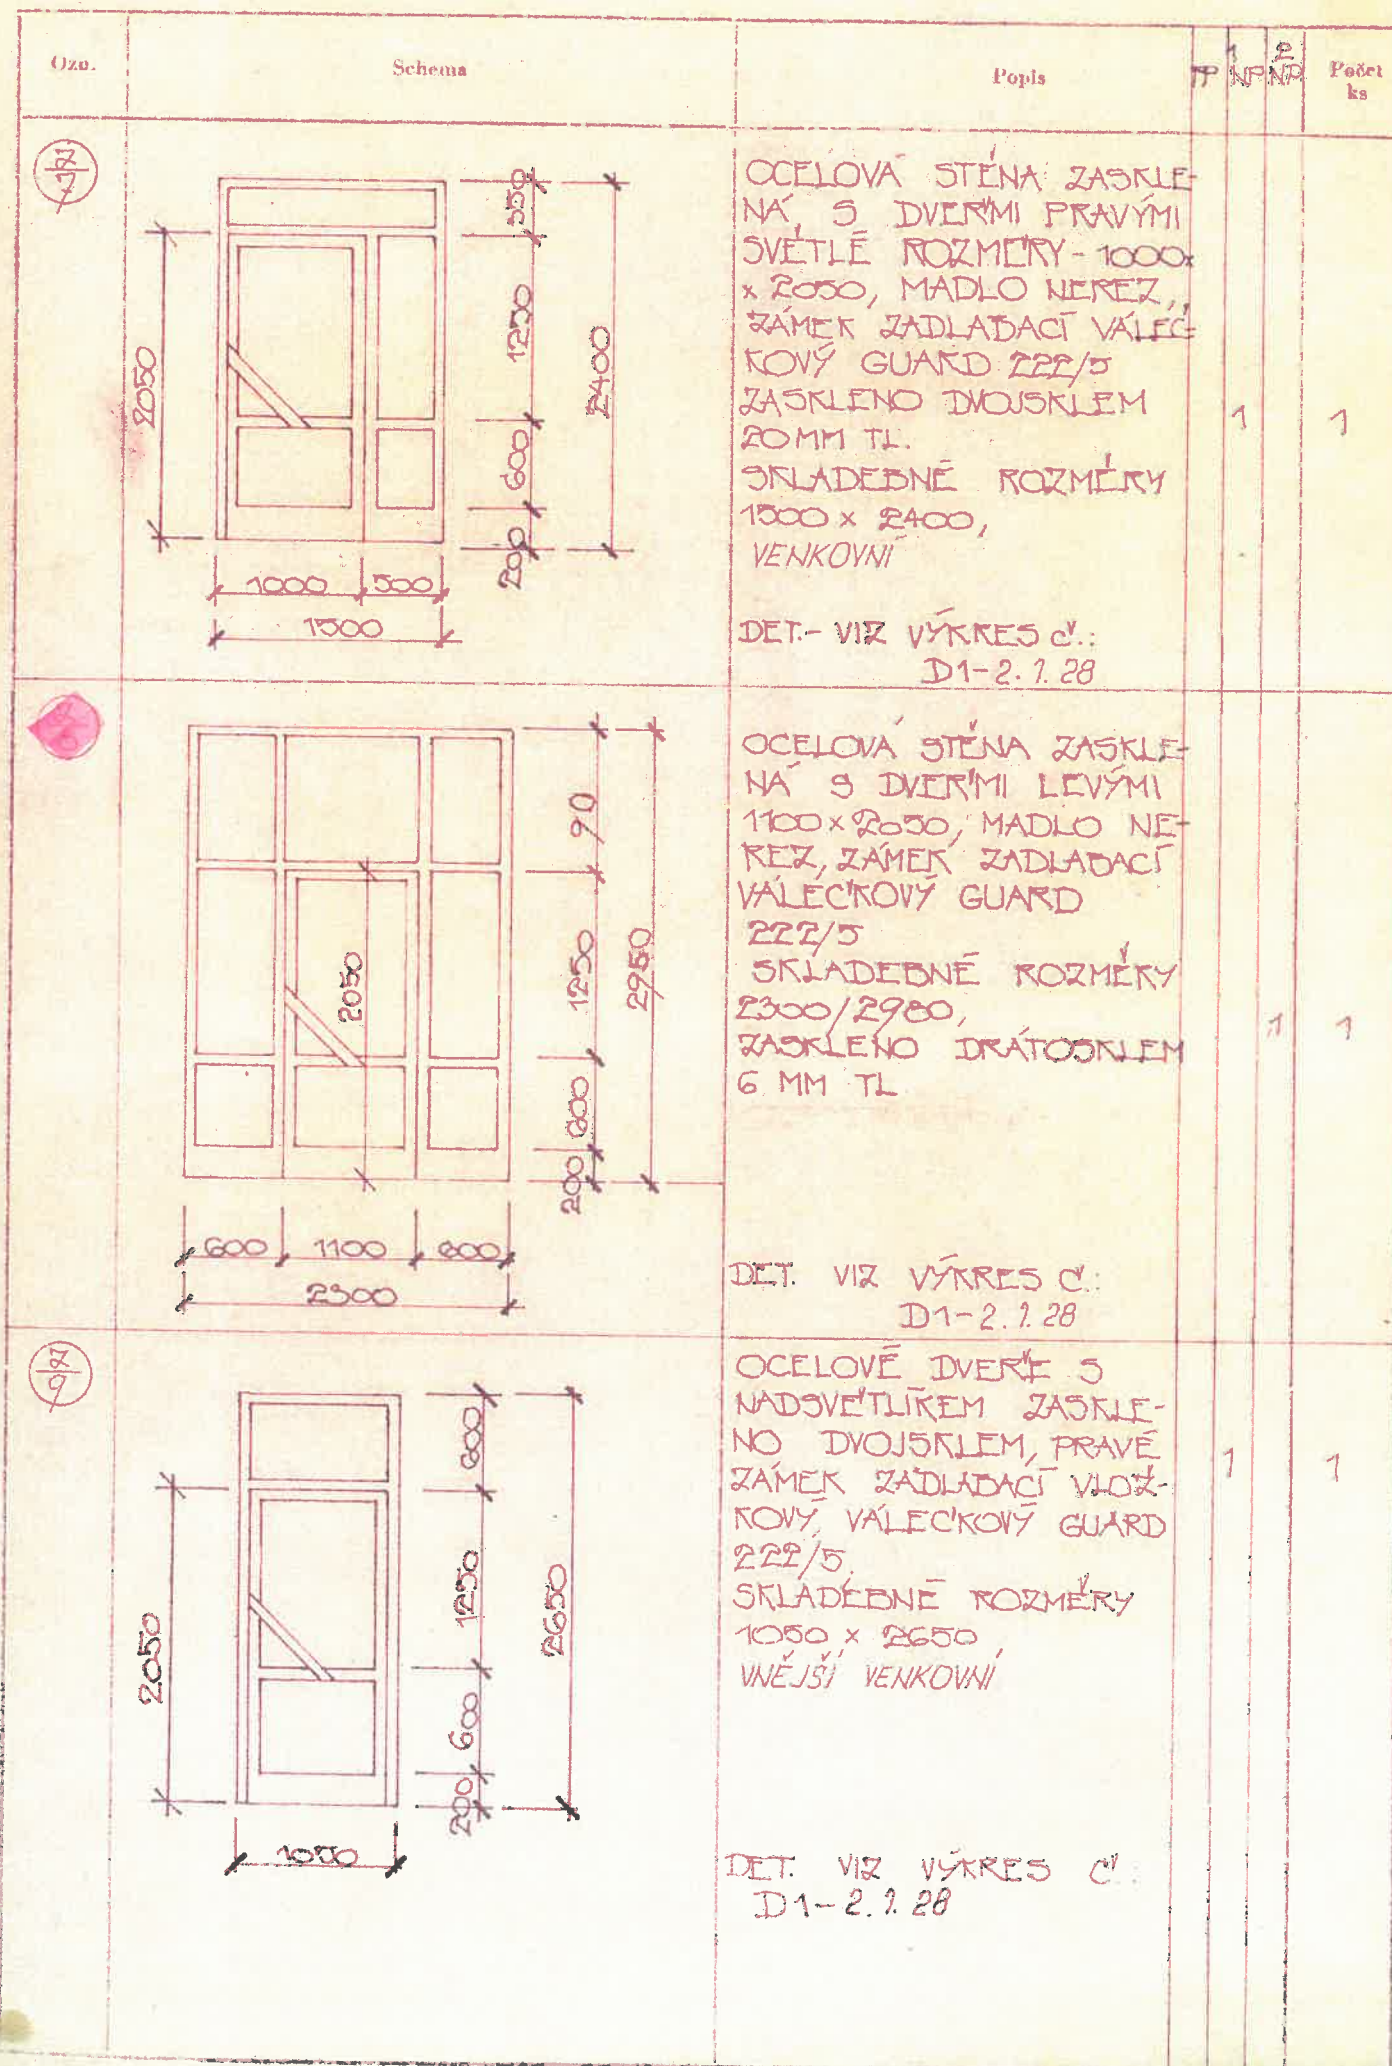 Ozn.
Schema
Popis
PP
1
NP
2
NP
Počet
ks
Z
7
OCELOVÁ STĚNA ZASKLE-
NÁ, S DVEŘMI PRAVÝMI
SVĚTLÉ ROZMĚRY - 1000x
x 2050, MADLO NEREZ,
ZÁMEK ZADLABACÍ VÁLEČ-
KOVÝ GUARD 222/5
ZASKLENO DVOJSKLEM
20MM TL.
SKLADEBNÉ ROZMĚRY
1500 x 2400,
VENKOVNÍ
DET.- VIZ VÝKRES Č.:
D1-2.1.28
1
1
2050
550
1250
600
200
2400
1000
500
1500
OCELOVÁ STĚNA ZASKLE-
NÁ S DVEŘMI LEVÝMI
1100 x 2050, MADLO NE-
REZ, ZÁMEK ZADLABACÍ
VÁLEČKOVÝ GUARD
222/5
SKLADEBNÉ ROZMĚRY
2300/2980,
ZASKLENO DRÁTOSKLEM
6 MM TL
DET. VIZ VÝKRES Č.:
D1-2.1.28
1
1
90
1250
600
200
2950
2050
600
1100
600
2300
Z
9
OCELOVÉ DVEŘE S
NADSVĚTLÍKEM ZASKLE-
NO DVOJSKLEM, PRAVÉ
ZÁMEK ZADLABACÍ VLOŽ-
KOVÝ, VÁLEČKOVÝ GUARD
222/5.
SKLADEBNÉ ROZMĚRY
1050 x 2650,
VNĚJŠÍ VENKOVNÍ
DET. VIZ VÝKRES Č.:
D1-2.1.28
1
1
2050
600
1250
600
200
2650
1050